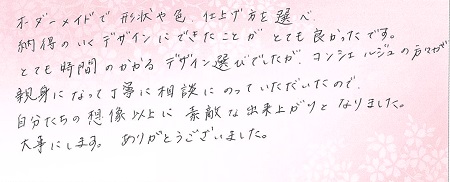 オーダーメイドで 形状や色、仕上げ方を選べ、
納得のいくデザインにできたことが とても良かったです。
とても時間のかかる デザイン選びでしたが、コンシェルジュの方々が
親身になって丁寧に相談にのっていただいたので、
自分たちの想像以上に 素敵な出来上がりと なりました。
大事にします。 ありがとうございました。